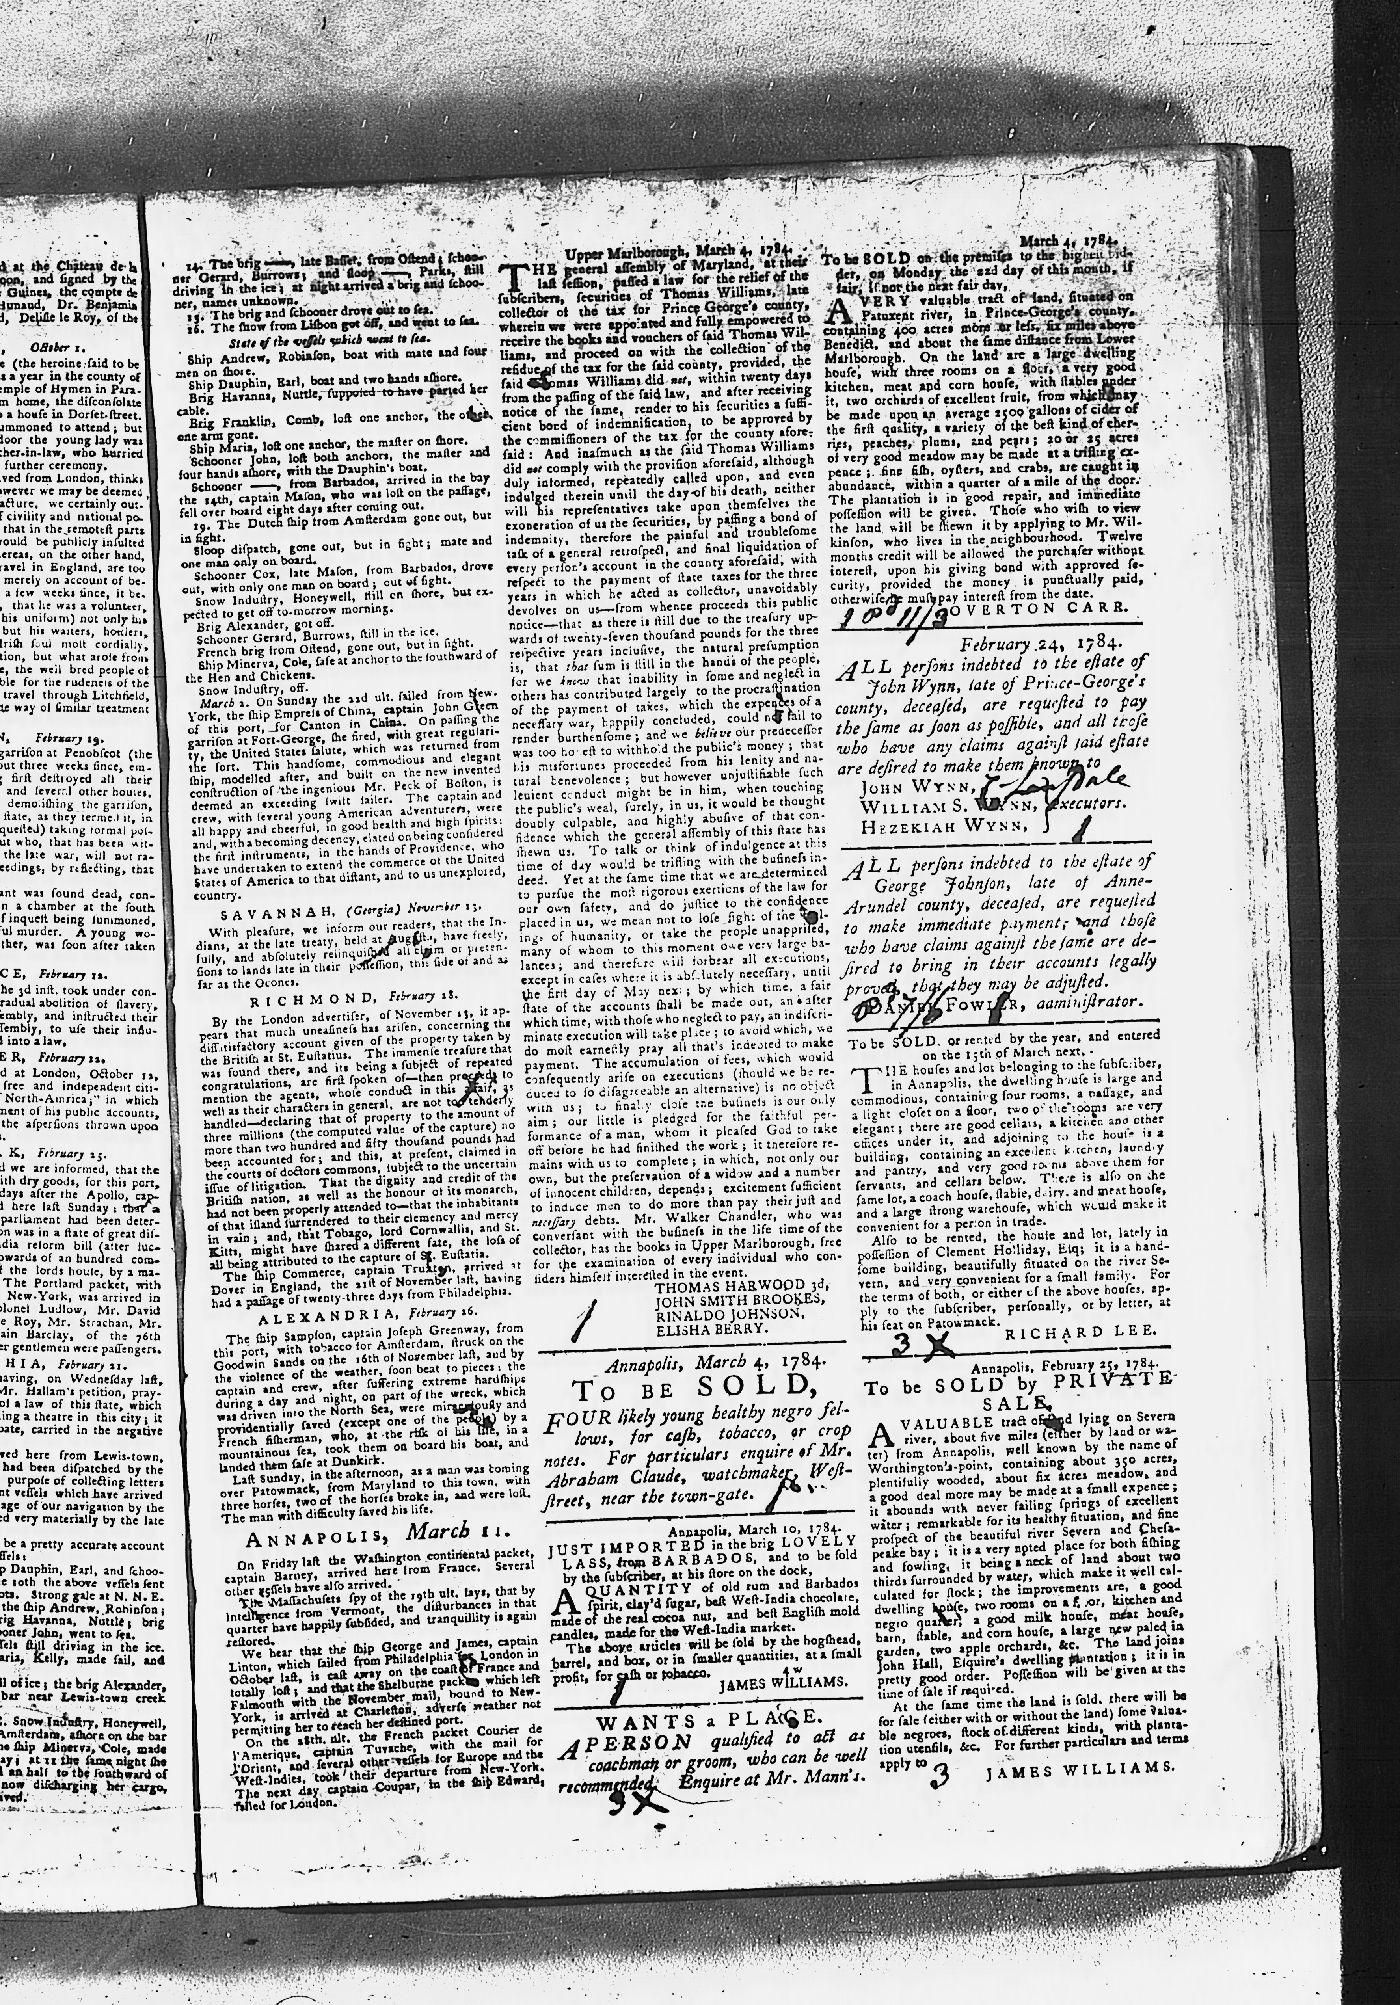 d at the Château de la
oon, and signed by the
Guines, the compte de
Humand, Dr. Benjamin
d, Delisle le Roy, of the
October 1.
e (the heroine said to be
s a year in the county of
emple of Hymen in Para-
m home, the disconsolate
o a house in Dorset-street.
ummoned to attend; but
door the young lady was
her-in-law, who hurried
further ceremony.
ved from London, thinks
owever we may be deemed
acture, we certainly out-
f civility and national po-
that in the remotest parts
would be publicly insulted
ereas, on the other hand,
ravel in England, are too
merely on account of be-
a few weeks since, it be-
, that he was a volunteer,
his uniform) not only his
but his waiters, hostlers,
Irish soul most cordially,
tion, but what arose from
e, the well bred people of
ble for the rudeness of the
travel through Litchfield,
e way of similar treatment
N, February 19.
garrison at Penobscot (the
out three weeks since, em-
first destroyed all their
and several other houses.
demolishing the garrison,
state, as they termed it, in
quested) taking formal pos-
ut who, that has been wit-
the late war, will not ra-
eedings, by reflecting, that
ant was found dead, con-
n a chamber at the south
f inquest being summoned,
ful murder. A young wo-
ther, was soon after taken
CE, February 12.
he 3d inst. took under con-
radual abolition of slavery,
embly, and instructed their
sembly, to use their influ-
d into a law.
ER, February 12,
d at London, October 12,
free and independent citi-
North-America;" in which
ment of his public accounts,
the aspersions thrown upon
K, February 25.
d we are informed, that the
ith dry goods, for this port,
days after the Apollo, cap-
d here last Sunday; that a
parliament had been deter-
on was in a state of great dis-
dia reform bill (after suc-
owards of an hundred com-
f the lords house, by a ma-
The Portland packet, with
New-York, was arrived in
olonel Ludlow, Mr. David
e Roy, Mr. Strachan, Mr.
ain Barclay, of the 76th
er gentlemen were passengers.
HIA, February 21.
having, on Wednesday last,
Mr. Hallam's petition, pray-
of a law of this state, which
ing a theatre in this city; it
bate, carried in the negative
ved here from Lewis-town,
had been dispatched by the
purpose of collecting letters
nt vessels which have arrived
age of our navigation by the
ed very materially by the late
be a pretty accurate account
ssels:
p Dauphin, Earl, and schoo-
10th the above vessels sent
ots. Strong gale at N. N. E.
the ship Andrew, Robinson;
rig Havanna, Nuttle; brig
ooner John, went to sea.
sels still driving in the ice.
aria, Kelly, made sail, and
ll of ice; the brig Alexander,
bar near Lewis-town creek
Snow Industry, Honeywell,
Amsterdam, ashore on the bar
he ship Minerva, Cole, made
ay; at 12 the same night she
an half to the southward of
now discharging her cargo,
ived.
14. The brig ——, late Basset, from Ostend; schoo-
ner Gerard, Burrows; and sloop ——, Parks, still
driving in the ice; at night arrived a brig and schoo-
ner, names unknown.
15. The brig and schooner drove out to sea.
16. The snow from Lisbon got off, and went to sea.
State of the vessels which went to sea.
Ship Andrew, Robinson, boat with mate and four
men on shore.
Ship Dauphin, Earl, boat and two hands ashore.
Brig Havanna, Nuttle, supposed to have parted her
cable.
Brig Franklin, Comb, lost one anchor, the other,
one arm gone.
Ship Maria, lost one anchor, the master on shore.
Schooner John, lost both anchors, the master and
four hands ashore, with the Dauphin's boat.
Schooner ——, from Barbados, arrived in the bay
the 14th, captain Mason, who was lost on the passage,
fell over board eight days after coming out.
19. The Dutch ship from Amsterdam gone out, but
in sight.
Sloop dispatch, gone out, but in sight; mate and
one man only on board.
Schooner Cox, late Mason, from Barbados, drove
out, with only one man on board; out of sight.
Snow Industry, Honeywell, still on shore, but ex-
pected to get off to-morrow morning.
Brig Alexander, got off.
Schooner Gerard, Burrows, still in the ice.
French brig from Ostend, gone out, but in sight.
Ship Minerva, Cole, safe at anchor to the southward of
the Hen and Chickens.
Snow Industry, off.
March 2. On Sunday the 22d ult. sailed from New-
York, the ship Empress of China, captain John Green
of this port, for Canton in China. On passing the
garrison at Fort-George, she fired, with great regulari-
ty, the United States salute, which was returned from
the fort. This handsome, commodious and elegant
ship, modelled after, and built on the new invented
construction of the ingenious Mr. Peck of Boston, is
deemed an exceeding swift sailer. The captain and
crew, with several young American adventurers, were
all happy and cheerful, in good health and high spirits:
and, with a becoming decency, elated on being considered
the first instruments, in the hands of Providence, who
have undertaken to extend the commerce of the United
States of America to that distant, and to us unexplored,
country.
SAVANNAH, (Georgia) November 13.
With pleasure, we inform our readers, that the In-
dians, at the late treaty, held at Augusta, have freely,
fully, and absolutely relinquished all claim or preten-
sions to lands late in their possession, this side of and as
far as the Ocones.
RICHMOND, February 28.
By the London advertiser, of November 15, it ap-
pears that much uneasiness has arisen, concerning the
dissatisfactory account given of the property taken by
the British at St. Eustatius. The immense treasure that
was found there, and its being a subject of repeated
congratulations, are first spoken of—then proceeds to
mention the agents, whose conduct in this affair, as
well as their characters in general, are not to tenderly
handled—declaring that of property to the amount of
three millions (the computed value of the capture) no
more than two hundred and fifty thousand pounds had
been accounted for; and this, at present, claimed in
the courts of doctors commons, subject to the uncertain
issue of litigation. That the dignity and credit of the
British nation, as well as the honour of its monarch,
had not been properly attended to—that the inhabitants
of that island surrendered to their clemency and mercy
in vain; and, that Tobago, lord Cornwallis, and St.
Kitts, might have shared a different fate, the loss of
all being attributed to the capture of St. Eustatia.
The ship Commerce, captain Truxton, arrived at
Dover in England, the 21st of November last, having
had a passage of twenty-three days from Philadelphia.
ALEXANDRIA, February 26.
The ship Sampson, captain Joseph Greenway, from
this port, with tobacco for Amsterdam, struck on the
Goodwin Sands on the 16th of November last, and by
the violence of the weather, soon beat to pieces; the
captain and crew, after suffering extreme hardships
during a day and night, on part of the wreck, which
was driven into the North Sea, were miraculously and
providentially saved (except one of the people) by a
French fisherman, who, at the risk of his life, in a
mountainous sea, took them on board his boat, and
landed them safe at Dunkirk.
Last Sunday, in the afternoon, as a man was coming
over Patowmack, from Maryland to this town, with
three horses, two of the horses broke in, and were lost.
The man with difficulty saved his life.
ANNAPOLIS, March 11.
On Friday last the Washington continental packet,
captain Barney, arrived here from France. Several
other vessels have also arrived.
The Massachusetts spy of the 19th ult. says, that by
intelligence from Vermont, the disturbances in that
quarter have happily subsided, and tranquillity is again
restored.
We hear that the ship George and James, captain
Linton, which sailed from Philadelphia for London in
October last, is cast away on the coast of France and
totally lost; and that the Shelburne packet which left
Falmouth with the November mail, bound to New-
York, is arrived at Charleston, adverse weather not
permitting her to reach her destined port.
On the 18th ult. the French packet Courier de
l'Amerique, captain Tuvache, with the mail for
l'Orient, and several other vessels for Europe and the
West-Indies, took their departure from New-York.
The next day captain Coupar, in the ship Edward,
sailed for London.
Upper Marlborough, March 4, 1784.
THE general assembly of Maryland, at their
last session, passed a law for the relief of the
subscribers, securities of Thomas Williams, late
collector of the tax for Prince George's county,
wherein we were appointed and fully empowered to
receive the books and vouchers of said Thomas Wil-
liams, and proceed on with the collection of the
residue of the tax for the said county, provided, the
said Thomas Williams did not, within twenty days
from the passing of the said law, and after receiving
notice of the same, render to his securities a suffi-
cient bond of indemnification, to be approved by
the commissioners of the tax for the county afore-
said: And inasmuch as the said Thomas Williams
did not comply with the provision aforesaid, although
duly informed, repeatedly called upon, and even
indulged therein until the day of his death, neither
will his representatives take upon themselves the
exoneration of us the securities, by passing a bond of
indemnity, therefore the painful and troublesome
task of a general retrospect, and final liquidation of
every person's account in the county aforesaid, with
respect to the payment of state taxes for the three
years in which he acted as collector, unavoidably
devolves on us—from whence proceeds this public
notice—that as there is still due to the treasury up-
wards of twenty-seven thousand pounds for the three
respective years inclusive, the natural presumption
is, that that sum is still in the hands of the people,
for we know that inability in some and neglect in
others has contributed largely to the procrastination
of the payment of taxes, which the expences of a
necessary war, happily concluded, could not fail to
render burthensome; and we believe our predecessor
was too honest to withhold the public's money; that
his misfortunes proceeded from his lenity and na-
tural benevolence; but however unjustifiable such
lenient conduct might be in him, when touching
the public's weal, surely, in us, it would be thought
doubly culpable, and highly abusive of that con-
fidence which the general assembly of this state has
shewn us. To talk or think of indulgence at this
time of day would be trifling with the business in-
deed. Yet at the same time that we are determined
to pursue the most rigorous exertions of the law for
our own safety, and do justice to the confidence
placed in us, we mean not to lose sight of the feel-
ings of humanity, or take the people unapprised,
many of whom to this moment owe very large ba-
lances; and therefore will forbear all executions,
except in cases where it is absolutely necessary, until
the first day of May next; by which time, a fair
state of the accounts shall be made out, and after
which time, with those who neglect to pay, an indiscri-
minate execution will take place; to avoid which, we
do most earnestly pray all that's indebted to make
payment. The accumulation of fees, which would
consequently arise on executions (should we be re-
duced to so disagreeable an alternative) is no object
with us; to finally close the business is our only
aim; our little is pledged for the faithful per-
formance of a man, whom it pleased God to take
off before he had finished the work; it therefore re-
mains with us to complete; in which, not only our
own, but the preservation of a widow and a number
of innocent children, depends; excitement sufficient
to induce men to do more than pay their just and
necessary debts. Mr. Walker Chandler, who was
conversant with the business in the life time of the
collector, has the books in Upper Marlborough, free
for the examination of every individual who con-
siders himself interested in the event.
THOMAS HARWOOD 3d,
JOHN SMITH BROOKES,
RINALDO JOHNSON,
ELISHA BERRY.
1
Annapolis, March 4, 1784.
TO BE SOLD,
FOUR likely young healthy negro fel-
lows, for cash, tobacco, or crop
notes. For particulars enquire of Mr.
Abraham Claude, watchmaker, West-
street, near the town-gate.
Annapolis, March 10, 1784.
JUST IMPORTED in the brig LOVELY
LASS, from BARBADOS, and to be sold
by the subscriber, at his store on the dock,
A QUANTITY of old rum and Barbados
spirit, clay'd sugar, best West-India chocolate,
made of the real cocoa nut, and best English mold
candles, made for the West-India market.
The above articles will be sold by the hogshead,
barrel, and box, or in smaller quantities, at a small
profit, for cash or tobacco. 4w
JAMES WILLIAMS.
1
WANTS a PLACE.
A PERSON qualified to act as
coachman or groom, who can be well
recommended. Enquire at Mr. Mann's.
3 X
March 4, 1784.
To be SOLD on the premises to the highest bid-
der, on Monday the 22d day of this month, if
fair, if not the next fair day,
A VERY valuable tract of land, situated on
Patuxent river, in Prince-George's county,
containing 400 acres more or less, six miles above
Benedict, and about the same distance from Lower
Marlborough. On the land are a large dwelling
house, with three rooms on a floor, a very good
kitchen, meat and corn house, with stables under
it, two orchards of excellent fruit, from which may
be made upon an average 2500 gallons of cider of
the first quality, a variety of the best kind of cher-
ries, peaches, plums, and pears; 20 or 25 acres
of very good meadow may be made at a trifling ex-
pence; fine fish, oysters, and crabs, are caught in
abundance, within a quarter of a mile of the door.
The plantation is in good repair, and immediate
possession will be given. Those who wish to view
the land will be shewn it by applying to Mr. Wil-
kinson, who lives in the neighbourhood. Twelve
months credit will be allowed the purchaser without
interest, upon his giving bond with approved se-
curity, provided the money is punctually paid,
otherwise he must pay interest from the date.
11/3 OVERTON CARR.
February 24, 1784.
ALL persons indebted to the estate of
John Wynn, late of Prince-George's
county, deceased, are requested to pay
the same as soon as possible, and all those
who have any claims against said estate
are desired to make them known to
JOHN WYNN,
WILLIAM S. WYNN, executors.
HEZEKIAH WYNN,
1
ALL persons indebted to the estate of
George Johnson, late of Anne-
Arundel county, deceased, are requested
to make immediate payment; and those
who have claims against the same are de-
sired to bring in their accounts legally
proved, that they may be adjusted.
DANIEL FOWLER, administrator.
To be SOLD, or rented by the year, and entered
on the 15th of March next,
THE houses and lot belonging to the subscriber,
in Annapolis, the dwelling house is large and
commodious, containing four rooms, a passage, and
a light closet on a floor, two of the rooms are very
elegant; there are good cellars, a kitchen and other
offices under it, and adjoining to the house is a
building, containing an excellent kitchen, laundry
and pantry, and very good rooms above them for
servants, and cellars below. There is also on the
same lot, a coach house, stable, dairy, and meat house,
and a large strong warehouse, which would make it
convenient for a person in trade.
Also to be rented, the house and lot, lately in
possession of Clement Holliday, Esq; it is a hand-
some building, beautifully situated on the river Se-
vern, and very convenient for a small family. For
the terms of both, or either of the above houses, ap-
ply to the subscriber, personally, or by letter, at
his seat on Patowmack.
RICHARD LEE.
3 X
Annapolis, February 25, 1784.
To be SOLD by PRIVATE
SALE,
A VALUABLE tract of land lying on Severn
river, about five miles (either by land or wa-
ter) from Annapolis, well known by the name of
Worthington's-point, containing about 350 acres,
plentifully wooded, about six acres meadow, and
a good deal more may be made at a small expence;
it abounds with never failing springs of excellent
water; remarkable for its healthy situation, and fine
prospect of the beautiful river Severn and Chesa-
peake bay; it is a very noted place for both fishing
and fowling, it being a neck of land about two
thirds surrounded by water, which make it well cal-
culated for stock; the improvements are, a good
dwelling house, two rooms on a floor, kitchen and
negro quarter; a good milk house, meat house,
barn, stable, and corn house, a large new paled in
garden, two apple orchards, &c. The land joins
John Hall, Esquire's dwelling plantation; it is in
pretty good order. Possession will be given at the
time of sale if required.
At the same time the land is sold, there will be
for sale (either with or without the land) some valua-
ble negroes, stock of different kinds, with planta-
tion utensils, &c. For further particulars and terms
apply to
3 JAMES WILLIAMS.